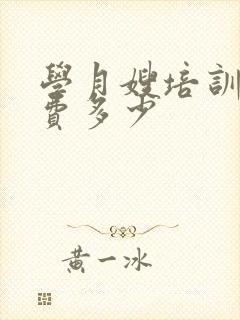 學月嫂培訓
費多少
黃一冰